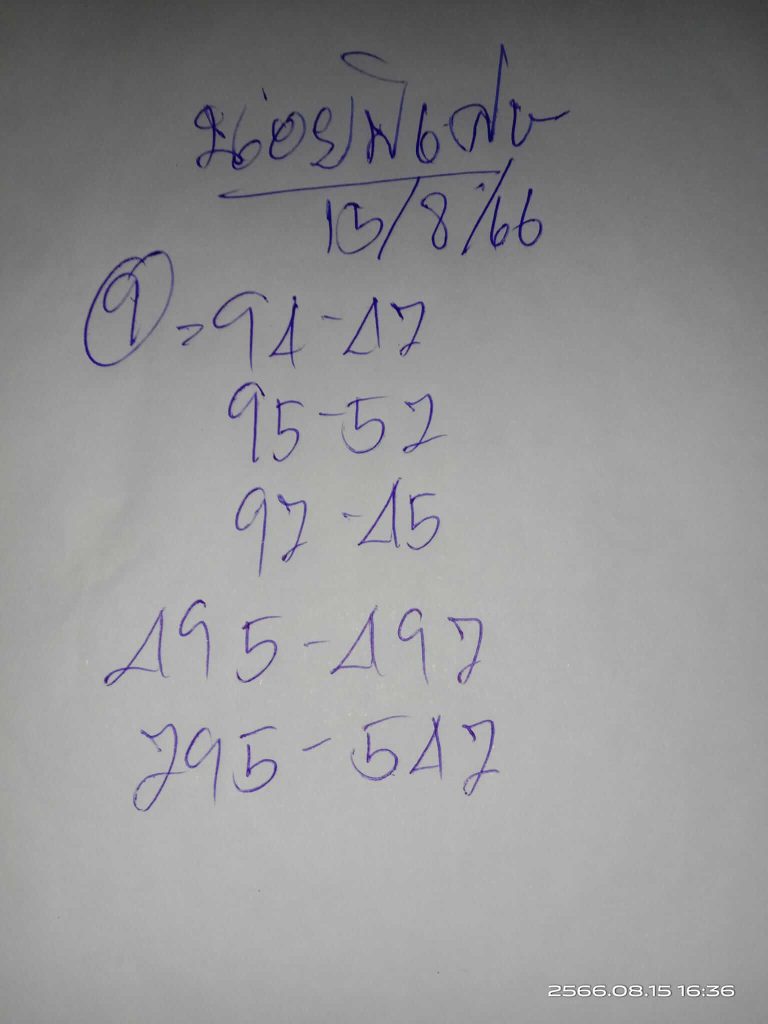 หน่อยพิเศษ
15/8/66
9 = 94-47
95-57
97-45
495-497
795-547
2566.08.15 16:36